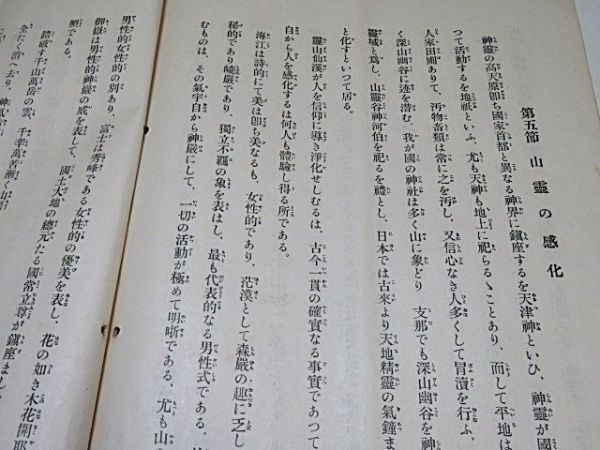 第五節 山靈の感化
神靈の高天原卽ち國家首都と異なる神界に鎭座するを天津神といひ、神靈が國
つて活動するを地祇といふ、尤も天神も地上に祀らるゝことあり、而して平地は
人家田園ありて、汚物畜類は常に之を汚し、又信心なき人多くして冒瀆を行ふ、
く深山幽谷に迹を潛む、我が國の神社は多く山に象どり 支那でも深山幽谷を神
靈域と爲し、山靈谷神河伯を祀るを禮とし、日本では古來より天地精靈の氣鐘ま
と化すといつて居る。
靈山仙漢が人を信仰に導き淨化せしむるは、古今一貫の確實なる事實であつて
自から人を感化するは何人も體驗し得る所である。
海江は詩的にて美は卽ち美なるも、女性的であり、茫漠として森嚴の趣に乏し
秘的であり崚嚴であり、獨立不羈の象を表はし、最も代表的なる男性式である、
むものは、その氣宇自から神嚴にして、一切の活動が極めて明晰である、尤も山
男性的女性的の別あり、富士は秀峰である女性的の優美を表し、花の如き木花開耶
御嶽は男性的神嚴の威を表して、國土大地の總元たる國常立尊が鎭座まし
照である。
踏破す千山萬岳の雲、千辛萬苦
全たく消へ去り、神氣